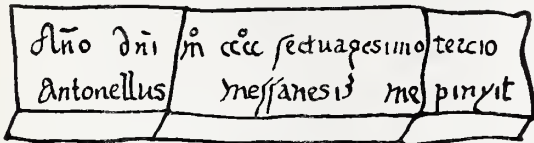 Año dñi m̊ cccc̊ sectuagesimo tercio
Antonellus messanesis me pinxit